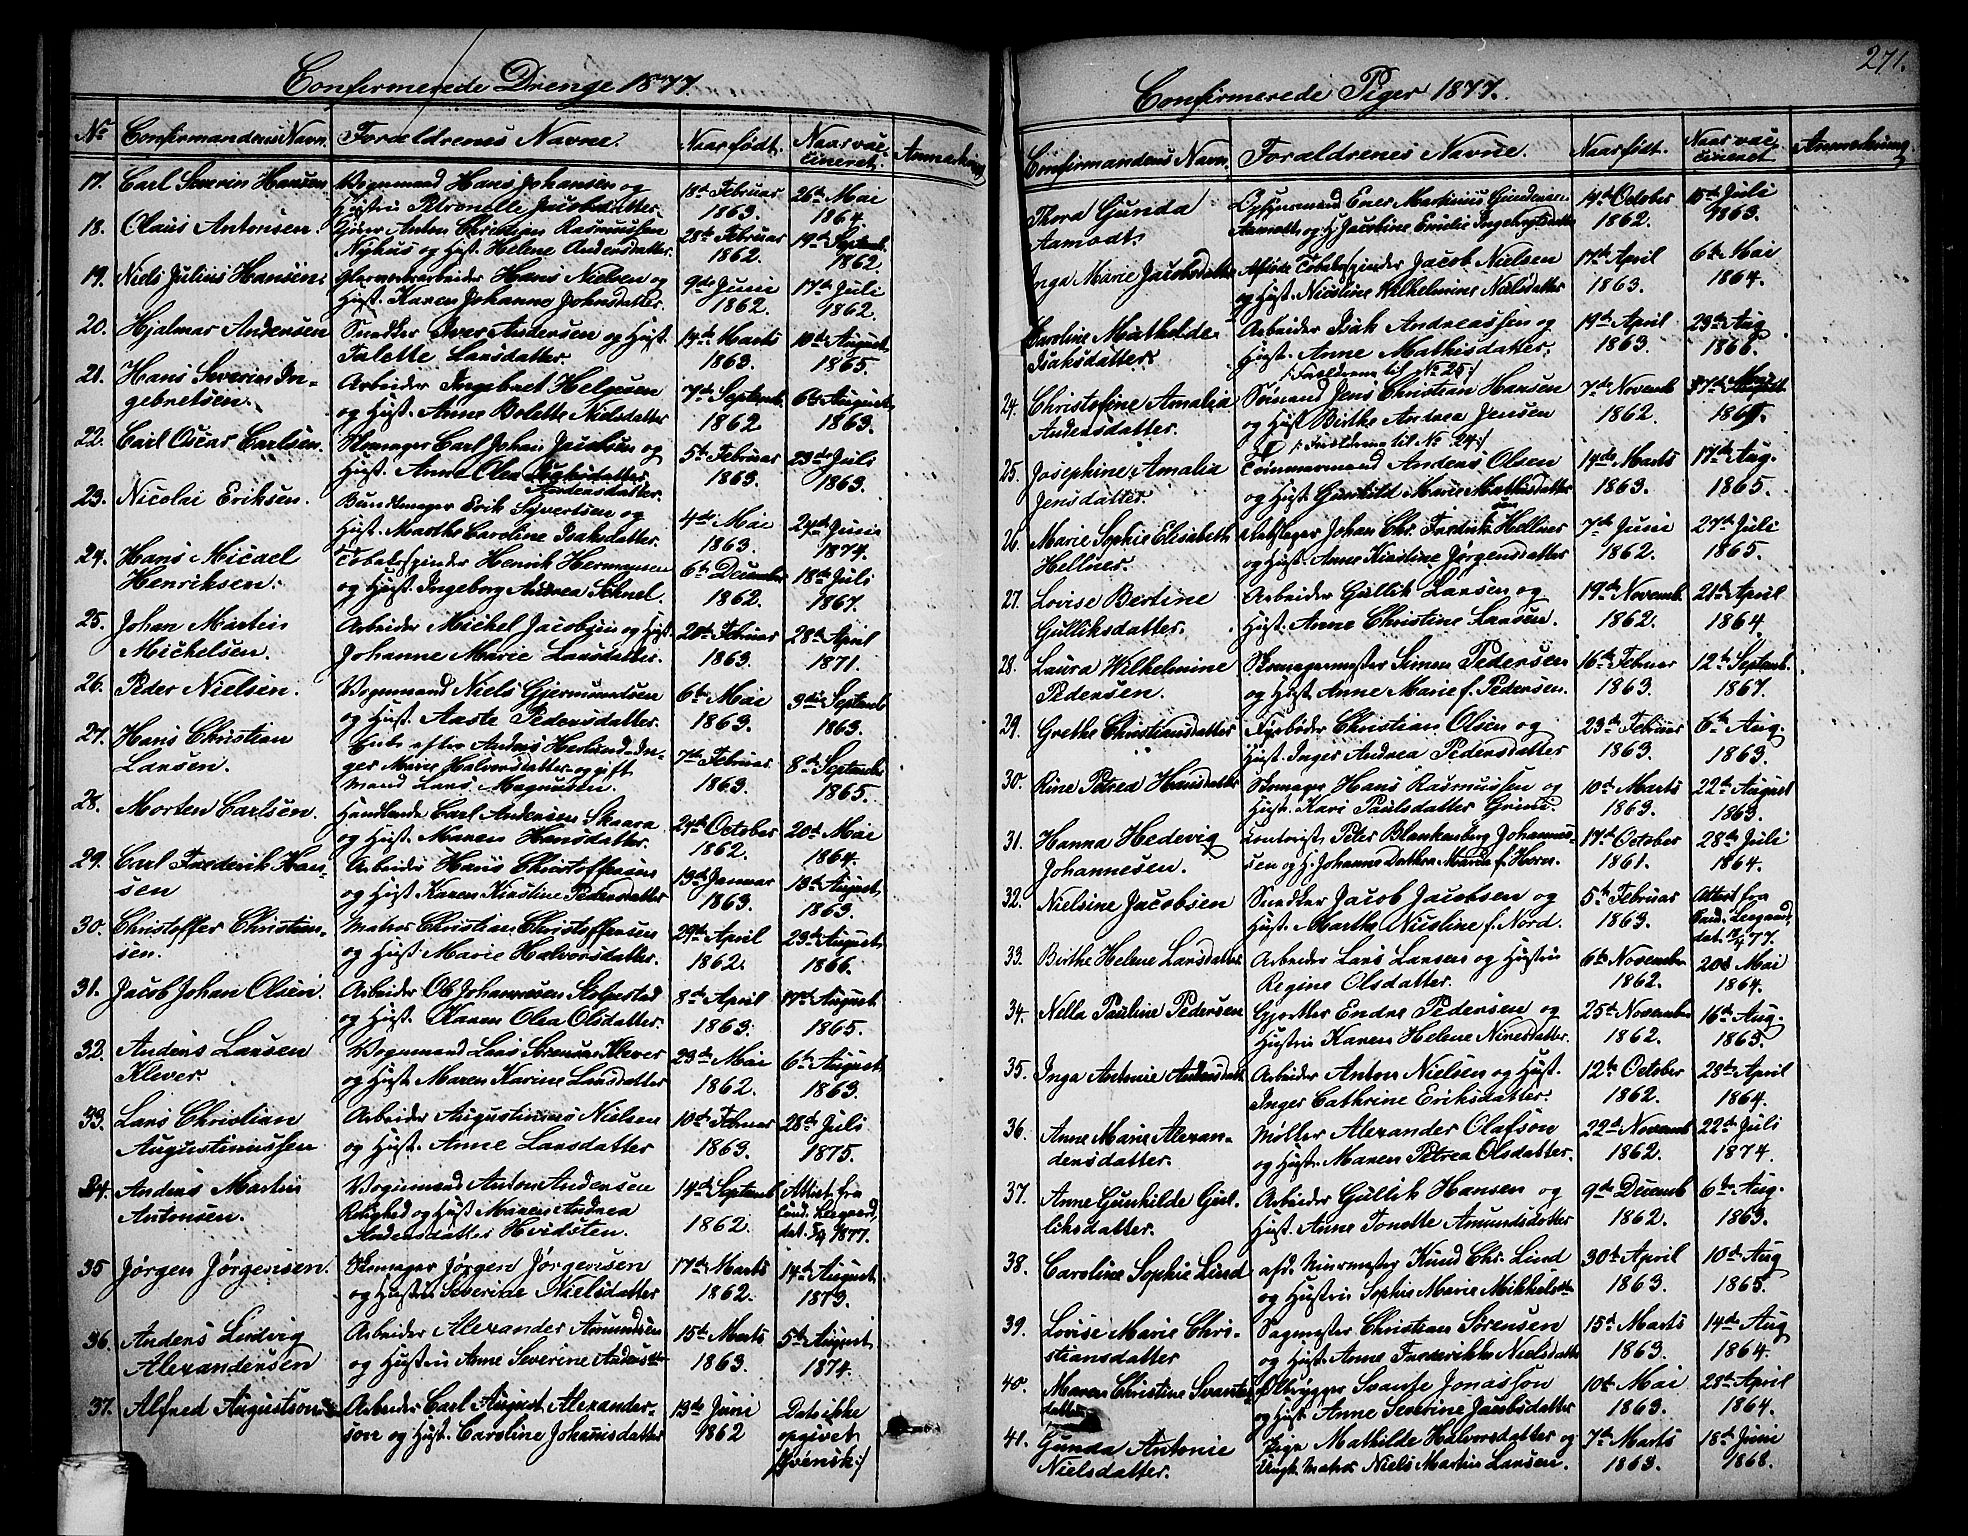 Confirmerede Drenge 1877.
No Confirmandens Navn. Forældrenes Navne. Naar født. Naar vac- Anmærkning
cineret.
17. Carl Severin Hansen Vognmand Hans Johansen og 18de Februar 26de Mai
Hustru Petronelle Jacobsdatter. 1863. 1864.
18. Olaus Antonsen. Anton Christian Rasmussen 28de Februar 19de Septemb.
Nyhus og Hust. Helene Andersdatter. 1862. 1862.
19. Niels Julius Hansen. Glarværksarbeider Hans Nielsen og 9de Juni 17de Juli
Hust. Karen Johanne Johnsdatter. 1862. 1862.
20. Hjalmar Andersen Snedker Iver Andersen og Hust. 14de Marts 10de August
Talette Larsdatter. 1863. 1865.
21. Hans Severin In- Arbeider Ingebret Helgesen 7de Septemb. 6te August
gebretsen. og Hust. Anne Bolette Nielsdatter 1862 1863.
22. Carl Oscar Carlsen. Skomager Carl Johan Jacobsen og 5te Februar 23de Juli
Hust. Anne Olea 1863. 1863.
Andersdatter.
23. Nicolai Eriksen. Bundtmager Erik Syvertsen og 4de Mai 24de Juni
Hust. Marthe Caroline Isaksdatter. 1863. 1874.
24. Hans Micael Tobaksspinder Henrik Hermansen 6te December 18de Juli
Henriksen. og Hust. Ingeborg Andrea Schnel. 1862. 1867.
25. Johan Martin Arbeider Michel Jacobsen og Hust. 20de Februar 28de April
Michelsen. Johanne Marie Larsdatter. 1863. 1871.
26. Peder Nielsen. Vognmand Niels Gjermundsen 6te Mai 3die Septemb
og Hust. Aaste Pedersdatter. 1863. 1863.
27. Hans Christian Enke efter Anders Herlund In-
Larsen. ger Marie Halvorsdatter og gift 7de Februar 8de Septemb.
Mand Lars Magnussen. 1863. 1865.
28. Morten Carlsen. Handlende Carl Andersen Skaara 24de October 20de Mai
og Hust. Maren Hansdatter. 1862. 1864.
29. Carl Frederik Han- Arbeider Hans Christoffersen 13de Januar 13de August
sen og Hust. Karen Kirstine Pedersdatter 1863. 1863.
30. Christoffer Christian- Matros Christian Christoffersen 29de April 23de August
sen. og Hust. Marie Halvorsdatter. 1862. 1866.
31. Jacob Johan Olsen. Arbeider Ole Johannesen Stolpestad 8de April 17de August
og Hust. Karen Olea Olsdatter. 1863. 1865.
32. Anders Larsen Vognmand Lars Sørensen Klever 23de Mai 6te August
Klever. og Hust. Maren Karine Larsdatter 1862. 1863.
33. Lars Christian Arbeider Augustinus Nielsen 10de Februar 28de Juli
Augustinussen og Hust. Anne Larsdatter 1863. 1875.
34. Anders Martin Vognmand Anton Andersen 14de Septemb Attest fra
Antonsen. Rolighed og Hust. Maren Andrea 1862. Cand. Leegaard,
Andersdatter Hvidsten. dat. 5/9 1877.
35 Jørgen Jørgensen. Skomager Jørgen Jørgensen 17de Marts 14de August
og Hustru Severine Nielsdatter 1862. 1873.
36. Anders Ludvig Arbeider Alexander Amundsen 15de Marts 5te August
Alexandersen og Hustru Anne Severine Andersdtr 1863. 1874.
37. Alfred Augustson Arbeider Carl August Alexander- 13de Juni Dato ikke
son og Hust. Caroline Johannisdatter 1862 opgivet
Svensk:/
271.
Confirmerede Piger 1877.
Confirmandens Navn. Forældrenes Navne. Naar født. Naar vac- Anmærkning
cineret
Thora Gunda Opsynsmand Ener Martinius Gundersen 14de October 15de Juli
Aamodt. Aamodt og H. Jacobine Emilie Ingebrigtsdatter 1862. 1863.
Inga Marie Jacobsdatter Afdøde Tobaksspinder Jacob Nielsen 17de April 6te Mai
og Hust. Nicoline Vilhelmine Nielsdatter 1863. 1864.
Caroline Mathilde Arbeider Isak Andreassen og 19de April 23de Aug
Isaksdatter. Hust. Anne Mathisdatter. 1863. 1866.
/:Forældrene til No 25:/
24. Christofine Amalia Sømand Jens Christian Hansen 7de Novemb
Andersdatter. og Hust. Birthe Andrea Jensen 1862.
/:Forældrene til No 24:/
25. Josephine Amalia Tømmermand Anders Olsen 14de Marts 17de Aug.
Jensdatter. og Hust. Gunhild Marie Mathisdatter 1863. 1865.
26. Marie Sophie Elisabeth Johan Chr. Fredrik Hellner 7de Juni 27de Juli
Hellner. og Hust. Anne Kirstine Jørgensdatter 1862. 1865.
27. Lovise Bertine Arbeider Gullik Larsen og 19de Novemb. 21de April
Gulliksdatter. Hust. Anne Christine Larsen. 1862. 1864.
28. Laura Wilhelmine Skomagermester Simon Pedersen 16de Februar 12te Septemb.
Pedersen. og Hust. Anne Marie f. Pedersen. 1863. 1867.
29. Grethe Christiansdatter Fyrbøder Christian Olsen og 23de Februar 6te Aug.
Hust. Inger Andrea Pedersdatter 1863. 1863.
30. Rine Petrea Hansdatter Skomager Hans Rasmussen og 10de Marts 22de August
Hust. Kari Paulsdatter Grini 1863. 1863.
31. Hanna Hedevig Contorist Peter Blankenborg Johannes- 17de October 28de Juli
Johannesen. sen og H. Johanne Dorthea Maria f. Hesse. 1861. 1864.
32. Nielsine Jacobsen Snedker Jacob Jacobsen og 5te Februar Attest fra
Hust. Marthe Nicoline f. Nord. 1863. Cand. Leegaard,
dat. 77.
33. Birthe Helene Larsdatter. Arbeider Lars Larsen og Hustru 6te November 20de Mai
Regine Olsdatter. 1862. 1864.
34. Nella Pauline Pedersen Gjortler Endre Pedersen og 25de November 16de Aug.
Hustru Karen Helene Ninesdatter. 1862. 1865.
35. Inga Antonie Andersdatt. Arbeider Anton Nielsen og Hust. 12te October 28de April
Inger Cathrine Eriksdatter. 1862. 1864.
36. Anne Marie Alexan- Møller Alexander Olafson 22de Novemb 22de Juli
dersdatter. og Hust. Maren Petrea Olsdatter. 1862. 1874.
37. Anne Gunhilde Gul- Arbeider Gullik Hansen og 9de Decemb 6te Aug.
liksdatter. Hust. Anne Tonette Amundsdatter 1862. 1863.
38. Caroline Sophie Lund afd. Murmester Knud Chr. Lund 30de April 10de Aug
og Hustru Sophie Marie Mikkelsdtr 1863. 1865.
39. Lovise Marie Chri- Sagmester Christian Sørensen 15de Marts 14de Aug
stiansdatter og Hust. Anne Frederikke Nielsdatter 1863. 1864.
40. Maren Christine Svantes- Ølbrygger Svante Jonasson 10de Mai 28de April
datter og Hust. Anne Severine Jacobsdatter 1863. 1864.
41. Gunda Antonie Pige Mathilde Halvorsdatter og 7de Marts 18de Juni
Nielsdatter. Ungk. Matros Niels Martin Larsen. 1863. 1868.